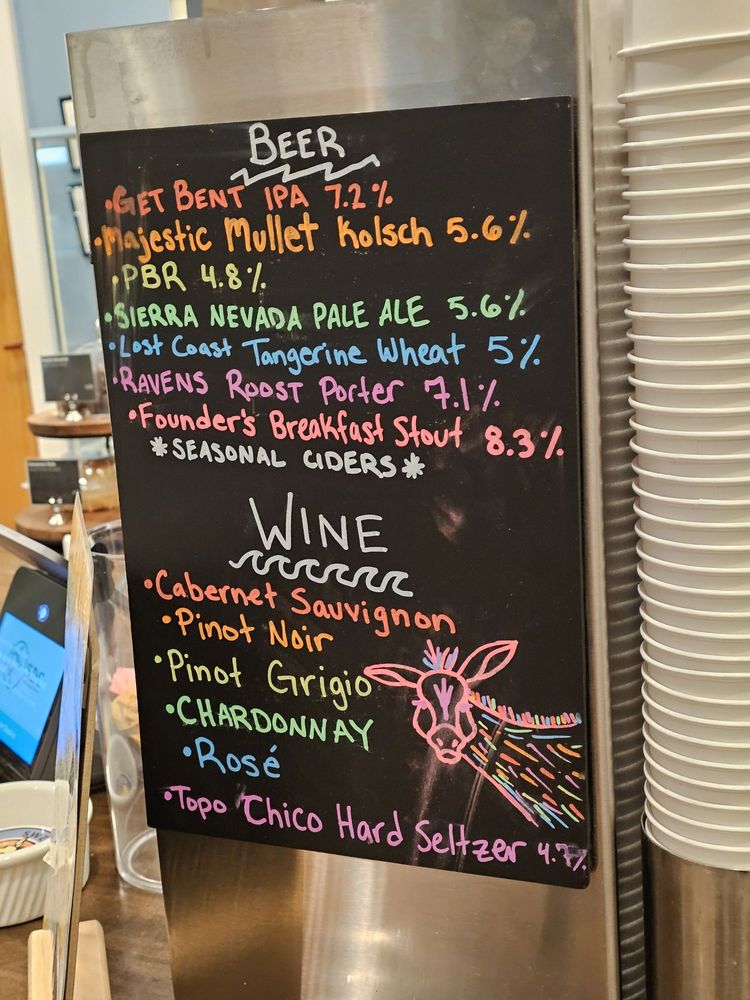 BEER
•GET BENT IPA 7.2%
•Majestic Mullet Kolsch 5.6%
•PBR 4.8%
•SIERRA NEVADA PALE ALE 5.6%
•Lost Coast Tangerine Wheat 5%
•RAVENS ROOST Porter 7.1%
•Founder's Breakfast Stout 8.3%
*SEASONAL CIDERS*
WINE
•Cabernet Sauvignon
•Pinot Noir
•Pinot Grigio
•CHARDONNAY
•Rosé
•Topo Chico Hard Seltzer 4.7%